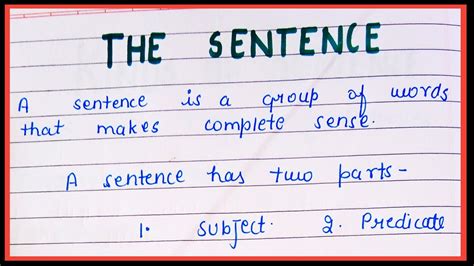 THE SENTENCE
A sentence is a group of words
that makes complete sense.
A sentence has two parts-
1. Subject. 2. Predicate